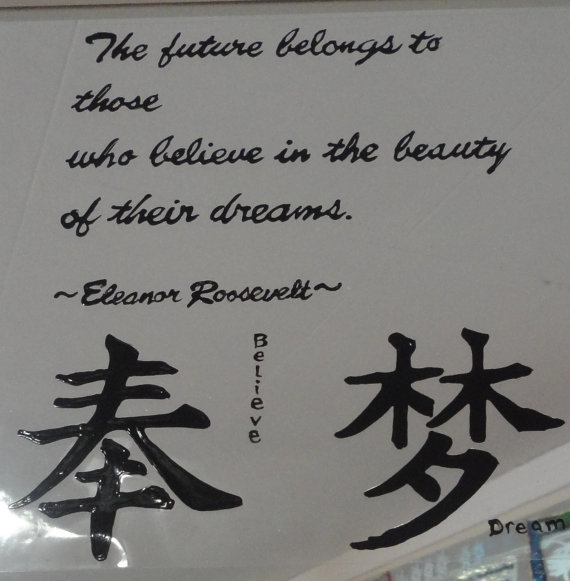 The future belongs to
those
who believe in the beauty
of their dreams.
~Eleanor Roosevelt~
奉
Believe
梦
Dream